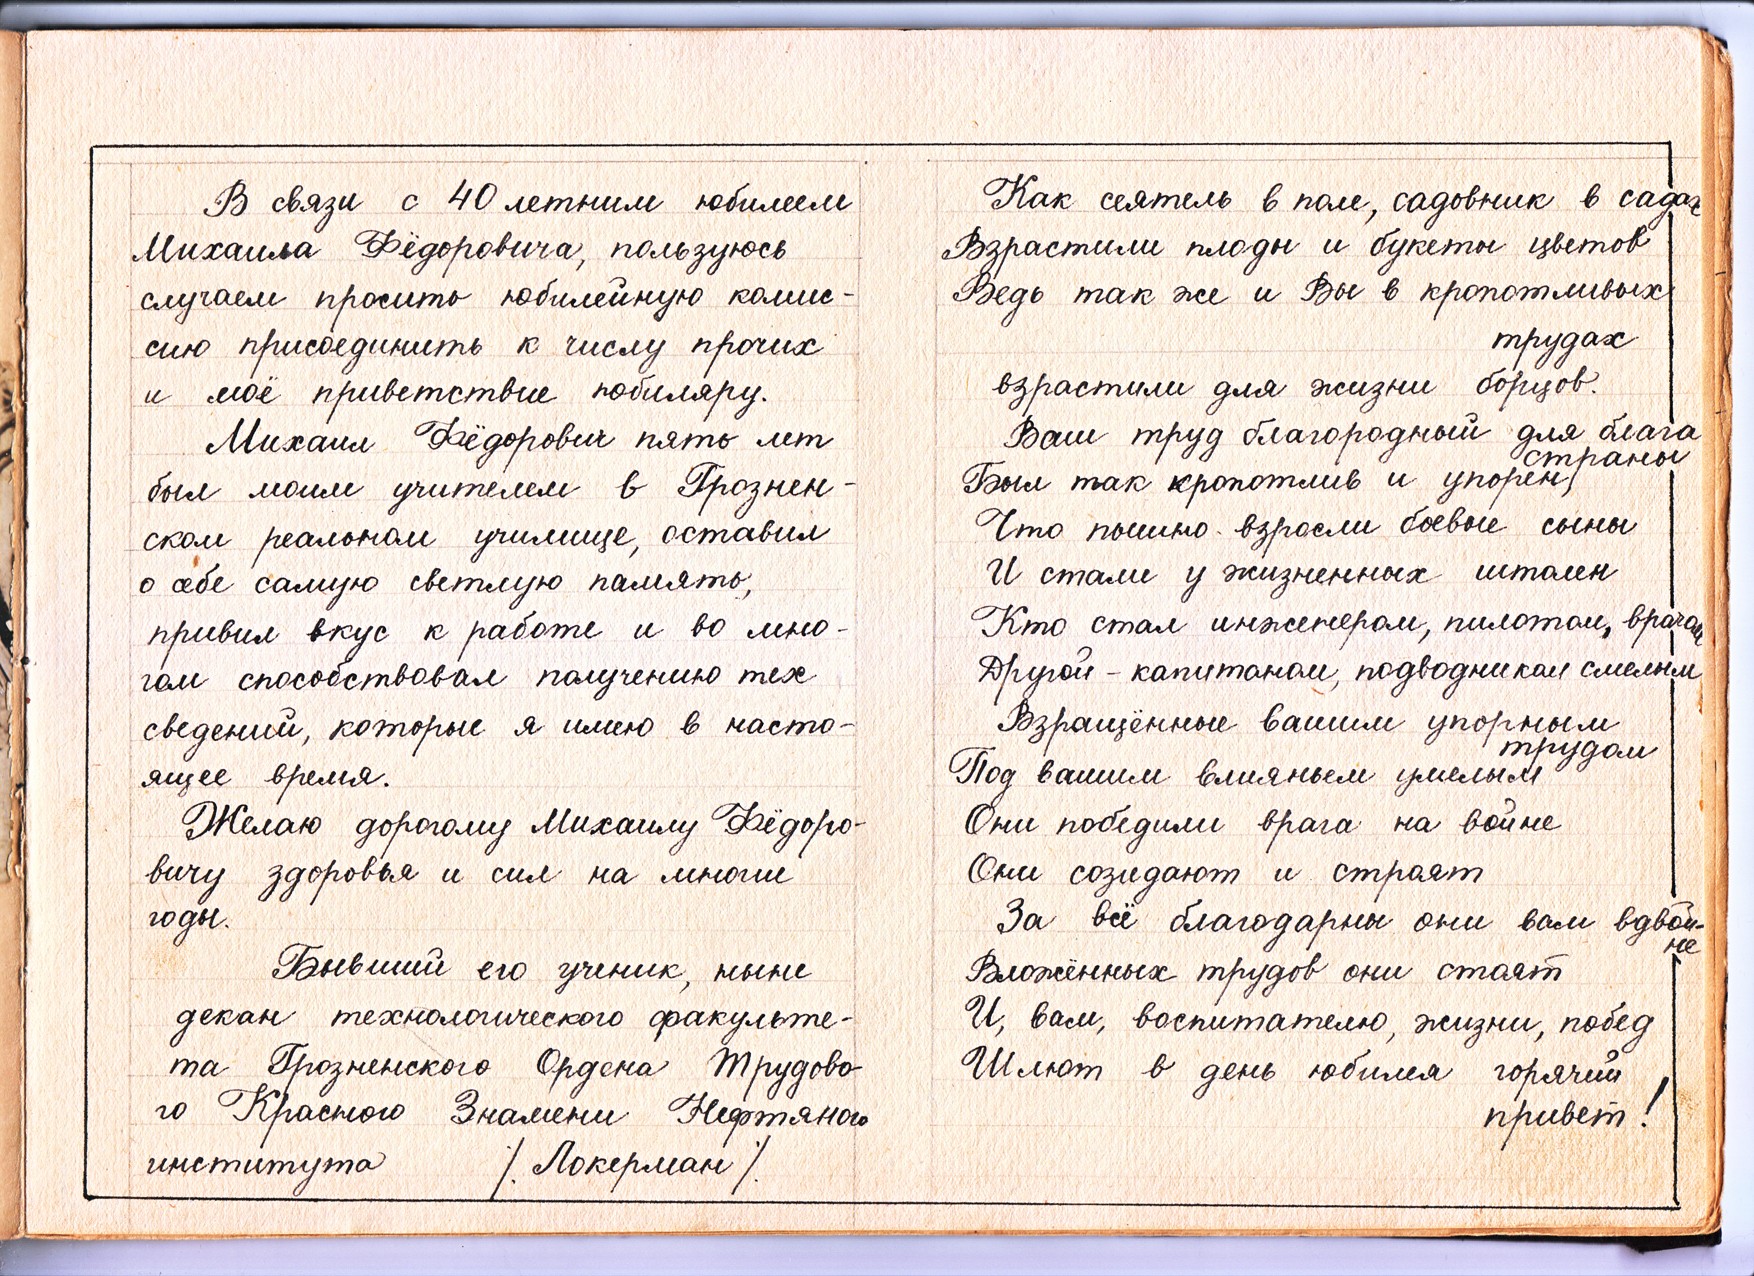 В связи с 40 летним юбилеем
Михаила Фёдоровича, пользуюсь
случаем просить юбилейную комис-
сию присоединить к числу прочих
и моё приветствие юбиляру.
Михаил Фёдорович пять лет
был моим учителем в Грознен-
ском реальном училище, оставил
о себе самую светлую память,
привил вкус к работе и во мно-
гом способствовал получению тех
сведений, которые я имею в насто-
ящее время.
Желаю дорогому Михаилу Фёдоро-
вичу здоровья и сил на многие
годы.
Бывший его ученик, ныне
декан технологического факульте-
та Грозненского Ордена Трудово
го Красного Знамени Нефтяного
института /. Локерман /.
Как сеятель в поле, садовник в садах
Взрастили плоды и букеты цветов
Ведь так же и Вы в кропотливых
трудах
взрастили для жизни борцов.
Ваш труд благородный для блага
страны
Был так кропотлив и упорен,
Что пышно взросли боевые сыны
И стали у жизненных штолен
Кто стал инженером, пилотом, врачом
Другой - капитаном, подводником смелым
Взращённые вашим упорным
трудом
Под вашим влияньем умелым
Они победили врага на войне
Они созидают и строят
За всё благодарны они вам вдвой-
не
Вложённых трудов они стоят
И, вам, воспитателю, жизни, побед
Шлют в день юбилея горячий
привет!